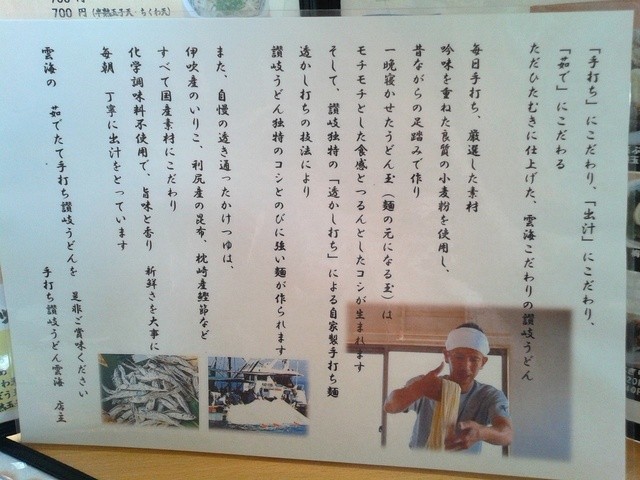 700円(半熟玉子天・ちくわ天)
「手打ち」にこだわり、「出汁」にこだわり、
「茹で」にこだわる
ただひたむきに仕上げた、雲海こだわりの讃岐うどん
毎日手打ち、厳選した素材
吟味を重ねた良質の小麦粉を使用し、
昔ながらの足踏みで作り
一晩寝かせたうどん玉(麺の元になる玉)は
モチモチとした食感とつるんとしたコシが生まれます
そして、讃岐独特の「透かし打ち」による自家製手打ち麺
透かし打ちの技法により
讃岐うどん独特のコシとのびに強い麺が作られます。
また、自慢の透き通ったかけつゆは、
伊吹産のいりこ、利尻産の昆布、枕崎産鰹節など
すべて国産素材にこだわり
化学調味料不使用で、旨味と香り 新鮮さを大事に
毎朝 丁寧に出汁をとっています
雲海の 茹でたて手打ち讃岐うどんを 是非ご賞味ください
手打ち讃岐うどん雲海 店主